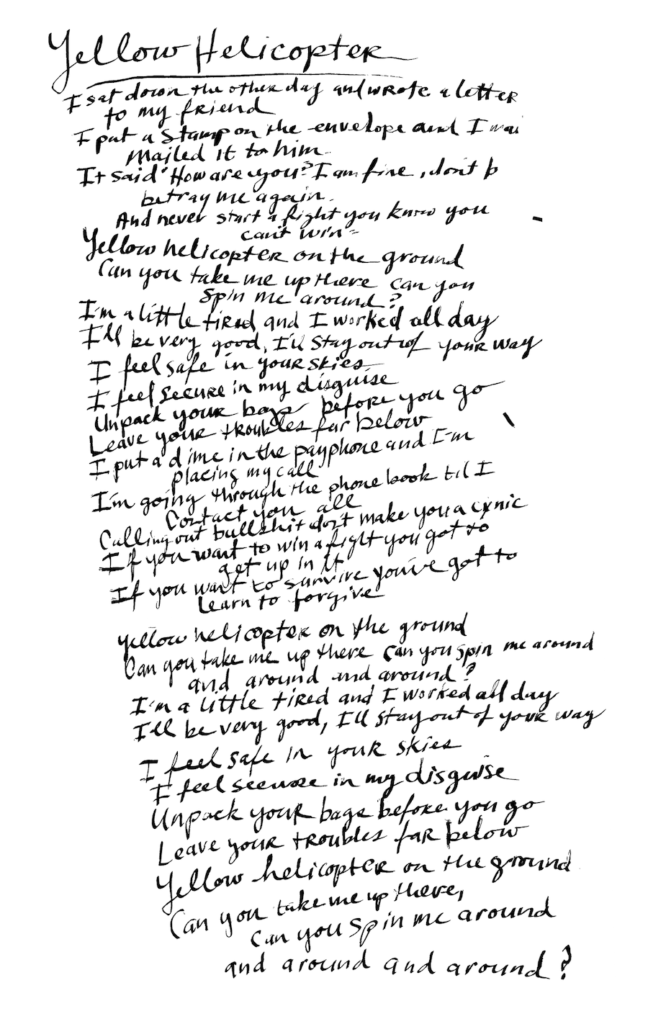 Yellow Helicopter
I sat down the other day and wrote a letter
to my friend
I put a stamp on the envelope and I
mailed it to him.
It said "How are you? I am fine, don't b
betray me again.
And never start a fight you know you
can't win"
Yellow helicopter on the ground
Can you take me up there can you
spin me around?
I'm a little tired and I worked all day
I'll be very good, I'll stay out of your way
I feel safe in your skies
I feel secure in my disguise
Unpack your bags before you go
Leave your troubles far below
I put a dime in the payphone and I'm
placing my call
I'm going through the phone book til I
contact you all
Calling out bullshit don't make you a cynic
If you want to win a fight you got to
get up in it
If you want to survive you've got to
learn to forgive
yellow helicopter on the ground
Can you take me up there can you spin me around
and around and around?
I'm a little tired and I worked all day
I'll be very good, I'll stay out of your way
I feel safe in your skies
I feel secure in my disguise
Unpack your bags before you go
Leave your troubles far below
Yellow helicopter on the ground
Can you take me up there,
Can you spin me around
and around and around?